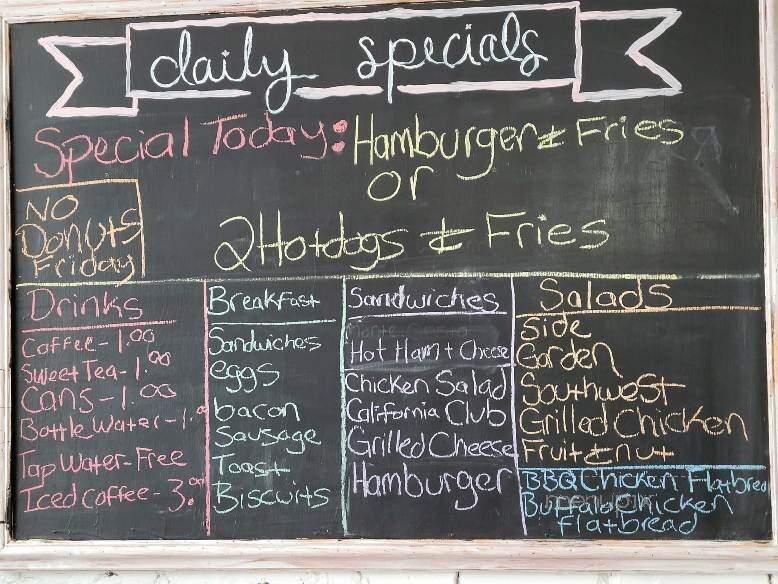 daily specials
Special Today: Hamburger & Fries
or
2 Hotdogs & Fries
NO
Donuts
Friday
Drinks
Coffee - 1.00
Sweet Tea - 1.00
Cans - 1.00
Bottle Water - 1.0
Tap Water - Free
Iced coffee - 3.00
Breakfast
Sandwiches
eggs
bacon
Sausage
Toast
Biscuits
Sandwiches
Hot Ham + Cheese
Chicken Salad
California Club
Grilled Cheese
Hamburger
Salads
Side
Garden
Southwest
Grilled Chicken
Fruit & nut
BBQ Chicken Flatbread
Buffalo Chicken
flatbread